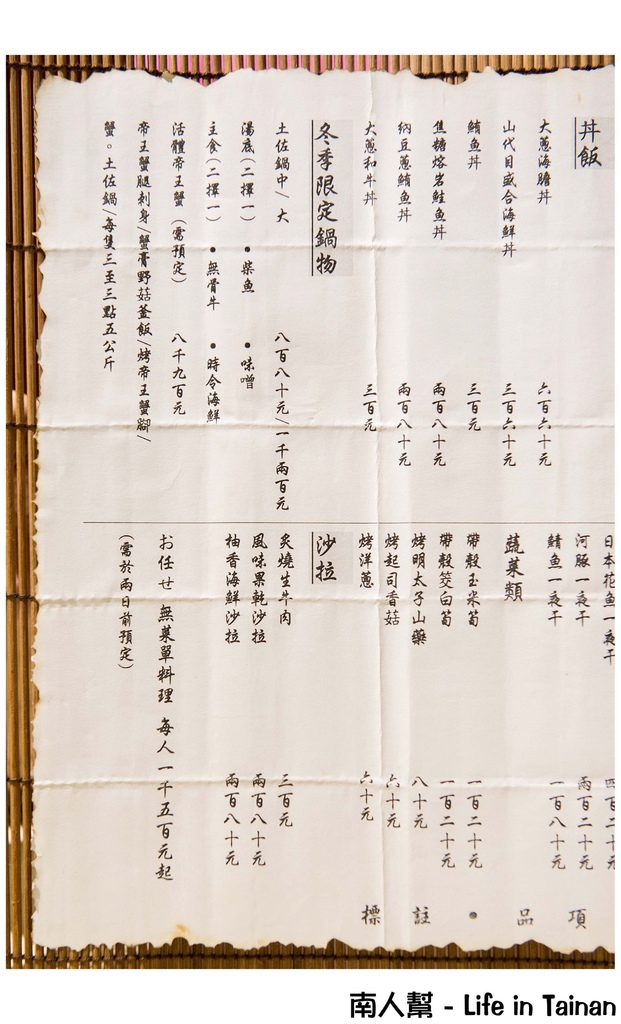 丼飯
大蔥海膽丼 六百六十元
山代目盛合海鮮丼 三百六十元
鮪魚丼 三百元
焦糖熔岩鮭魚丼 兩百八十元
納豆蔥鮪魚丼 兩百八十元
大蔥和牛丼 三百元
冬季限定鍋物
土佐鍋中/大 八百八十元/一千兩百元
湯底(二擇一) •柴魚 •味噌
主食(二擇一) •無骨牛 •時令海鮮
活體帝王蟹(需預定) 八千九百元
帝王蟹腿刺身/蟹膏野菇釜飯/烤帝王蟹腳/
蟹。土佐鍋/每隻三至三點五公斤
日本花魚一夜干 四百二十元
河豚一夜干 兩百二十元
鯖魚一夜干 一百八十元
蔬菜類
帶殼玉米筍 一百二十元
帶殼茭白筍 一百二十元
烤明太子山藥 八十元
烤起司香菇 六十元
烤洋蔥 六十元
沙拉
炙燒生牛肉 三百元
風味果乾沙拉 兩百八十元
柚香海鮮沙拉 兩百八十元
お任せ 無菜單料理 每人一千五百元起
(需於兩日前預定)
標註•品項
南人幫 - Life in Tainan